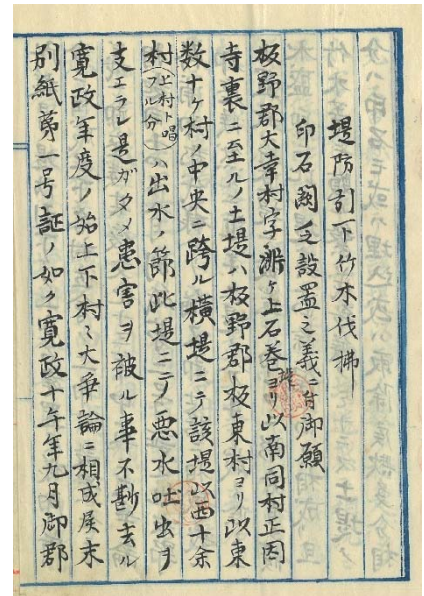 堤防引下竹木伐拂
印石閣之設置之義ニ付御願
板野郡大幸村字ヶ上石巻ヨリ以南同村正因
寺裏ニ至ルノ土堤ハ板野郡板東村ヨリ以東
数十ヶ村ノ中央ニ跨ル横堤ニテ該堤以西十余
村(上村ト唱フル分)ハ出水ノ節此堤ニテ悪水吐出ヲ
支エラレ是ガタメ患害ヲ被ル事不尠去ル
寛政年度ノ始上下村々大争論ニ相成候末
別紙第一号証ノ如ク寛政十午年九月御郡